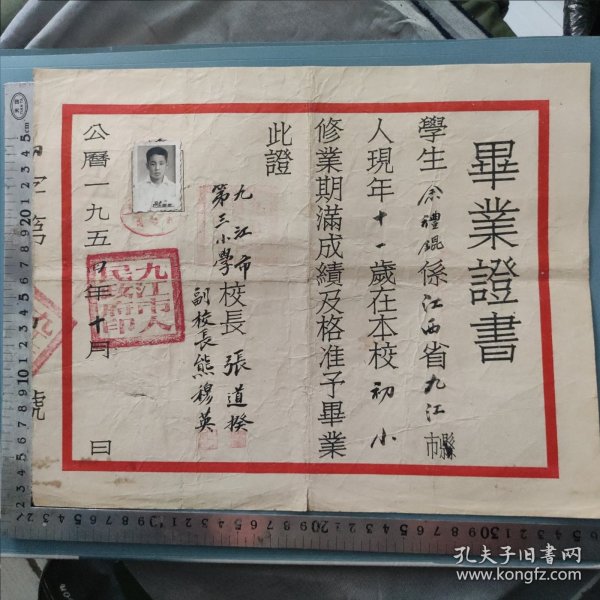 畢業證書
學生余禮錕係江西省九江縣市
人現年十一歲在本校初小
修業期滿成績及格准予畢業
此證
九江市
第三小學校長張道揆
副校長熊穆英
公曆一九五四年十月 日
字第
號
九江市人民政府印
孔夫子旧书网
www.kongfz.com